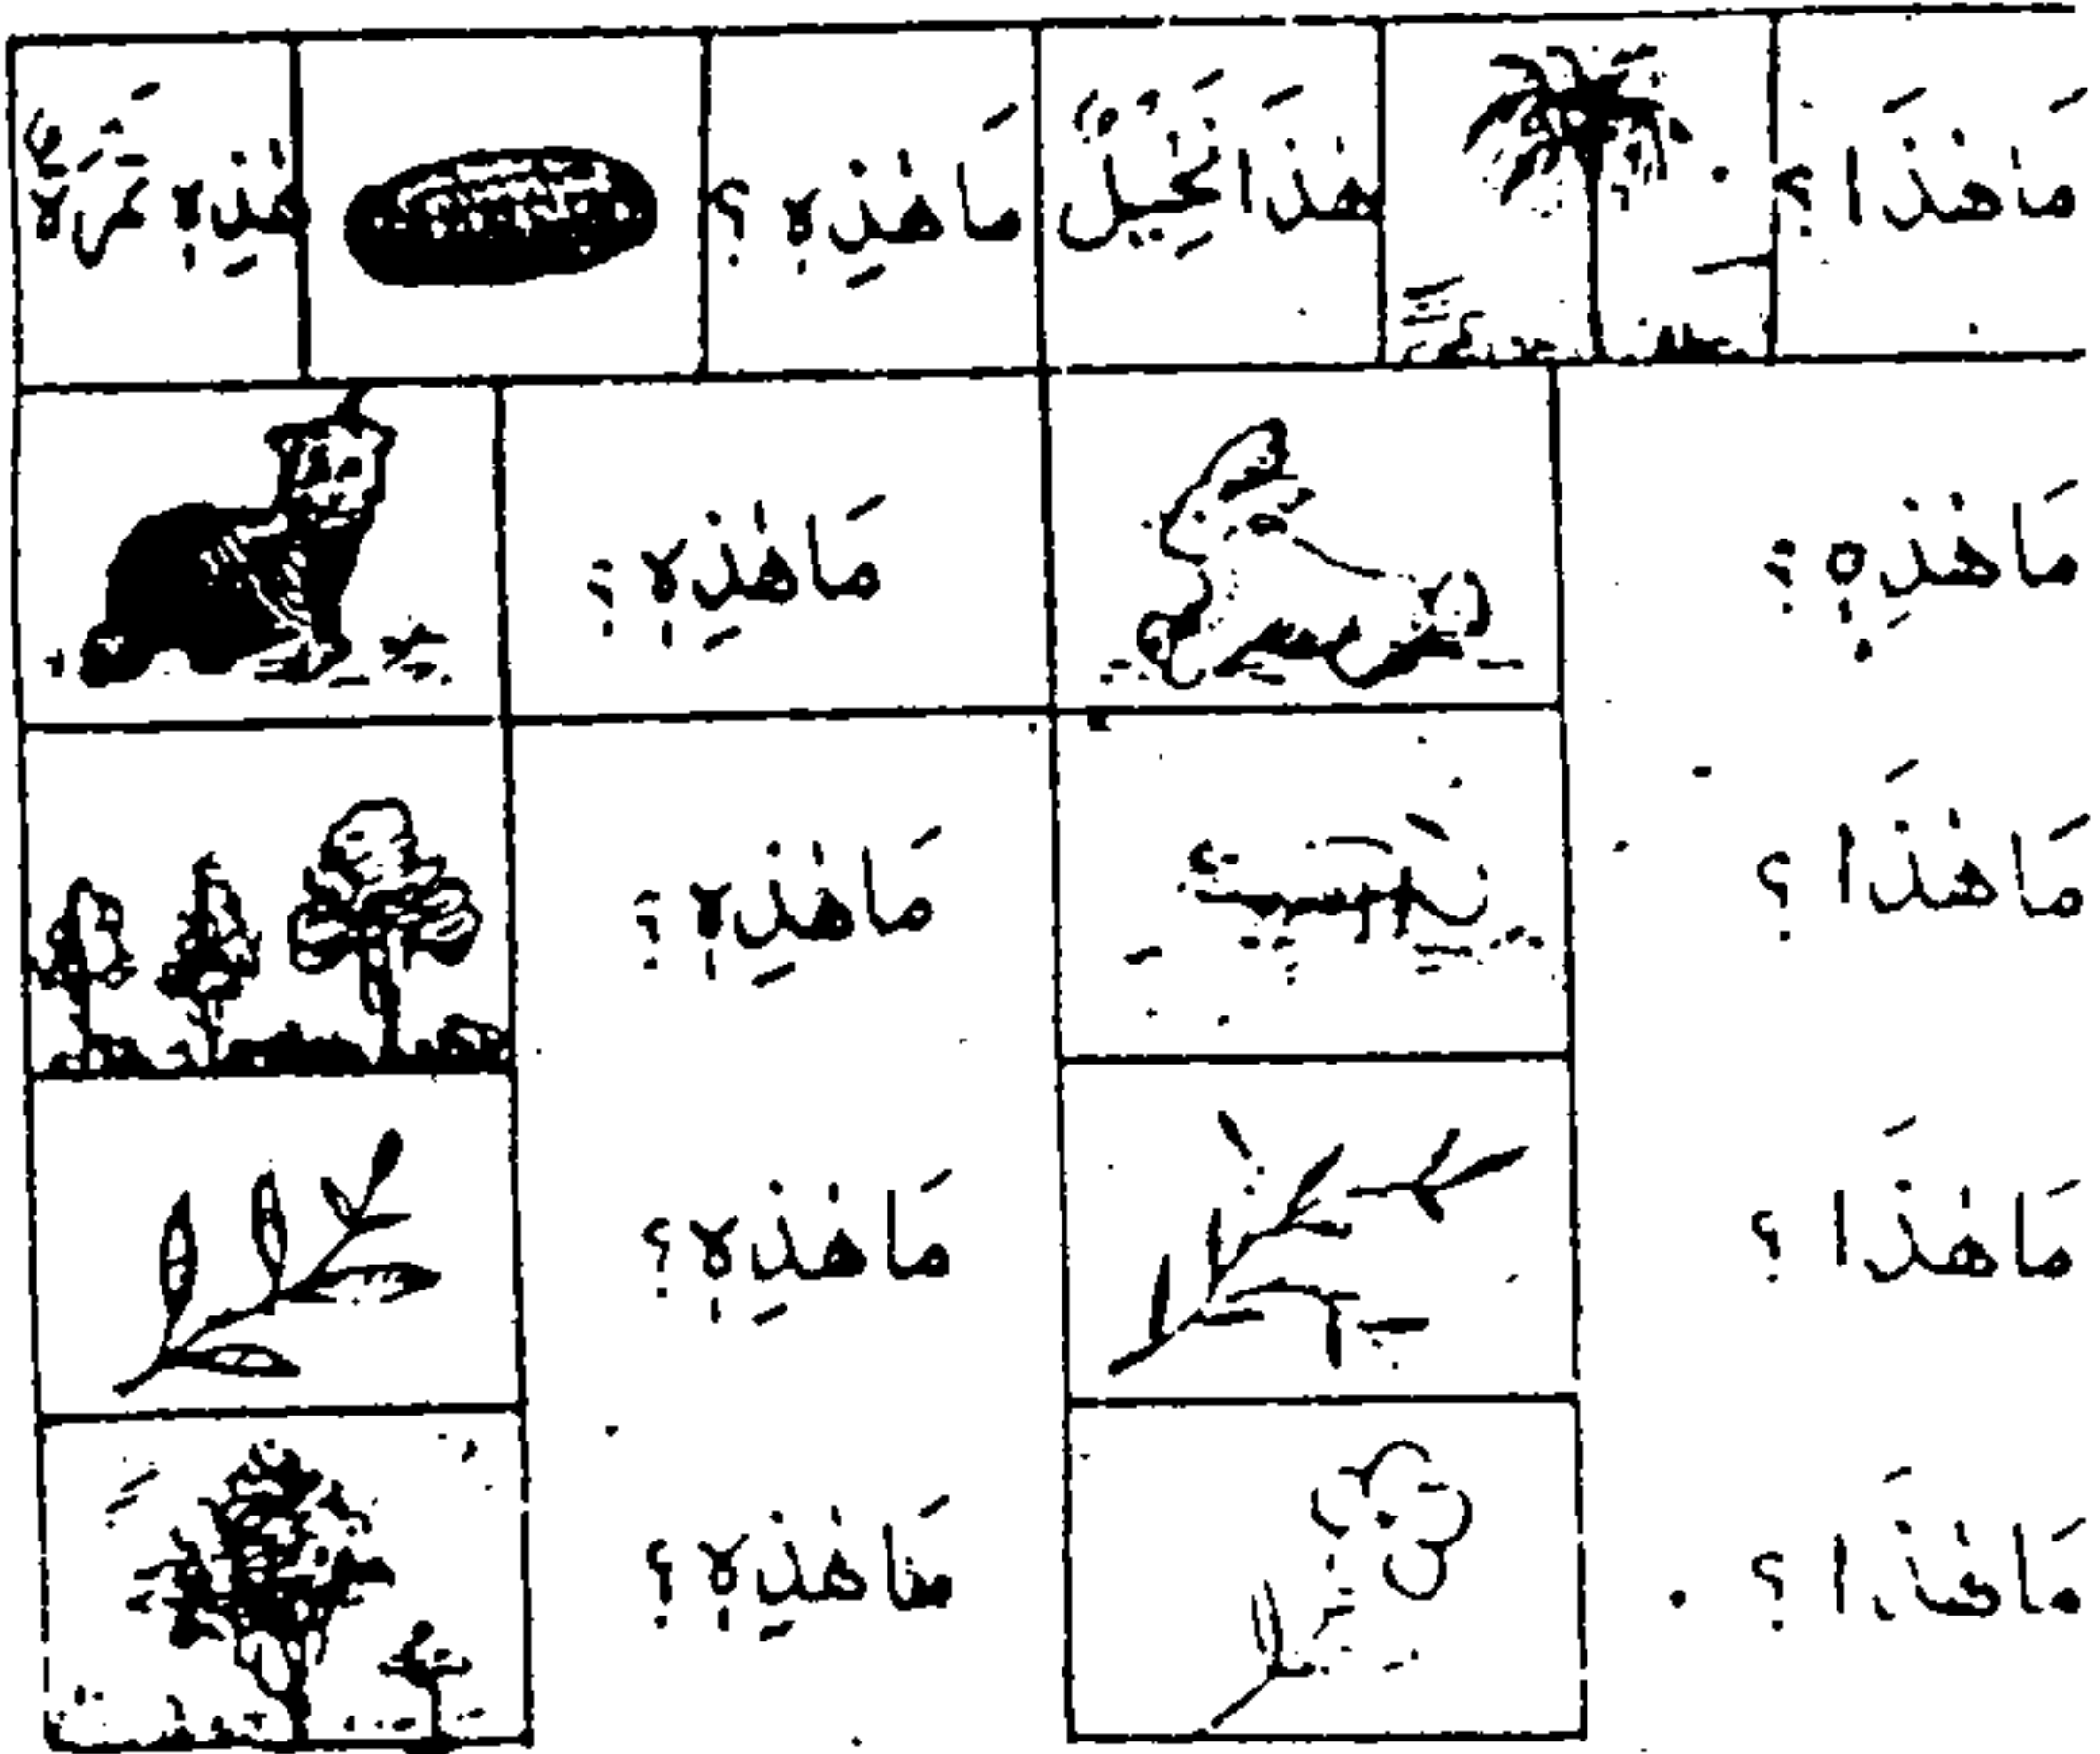 مَاهٰذَا؟ هٰذَا نَخِيْلٌ مَاهٰذِهِ؟ هٰذِهِ تَمْرَةٌ
مَاهٰذِهِ؟ مَاهٰذِهِ؟
مَاهٰذَا؟ مَاهٰذِهِ؟
مَاهٰذَا؟ مَاهٰذِهِ؟
مَاهٰذَا؟ مَاهٰذِهِ؟